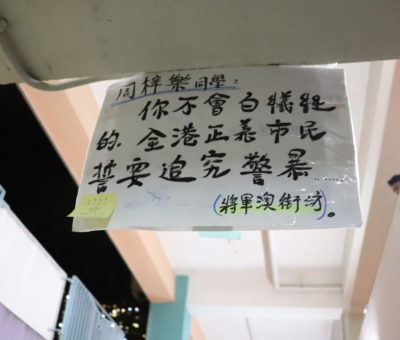 周梓樂同學：
你不會白犧牲
的，全港正義市民
誓要追究警暴……
(將軍澳街坊)。